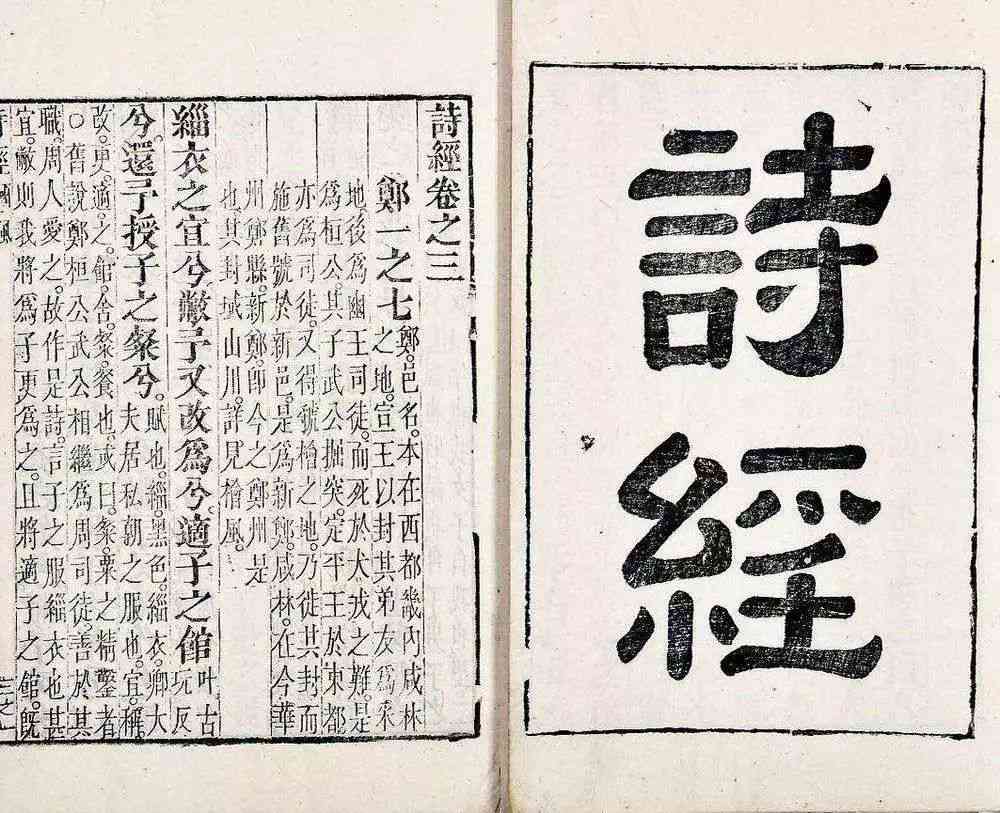 詩經
詩經卷之三
鄭一之七
鄭。邑名。本在西都畿內咸林
之地。宣王以封其弟友爲采
地。後爲幽王司徒。而死於犬戎之難。是
爲桓公。其子武公掘突。定平王於東都。
亦爲司徒。又得虢檜之地。乃徙其封。而
施舊號於新邑。是爲新鄭。咸林。在今華
州鄭縣。新鄭。卽今之鄭州是
也。其封域山川。詳見檜風。
緇衣之宜兮。敝予又改爲兮。適子之館
叶古
玩反
兮。還予授子之粲兮。
賦也。緇。黑色。緇衣。卿大
夫居私朝之服也。宜。稱。
改。更。適。之。館。舍。粲。餐也。或曰。粲。粟之精鑿者
○舊說。鄭桓公武公。相繼爲周司徒。善於其
職。周人愛之。故作是詩。言子之服緇衣也。甚
宜。敝則我將爲子更爲之。且將適子之館。旣
詩經國風